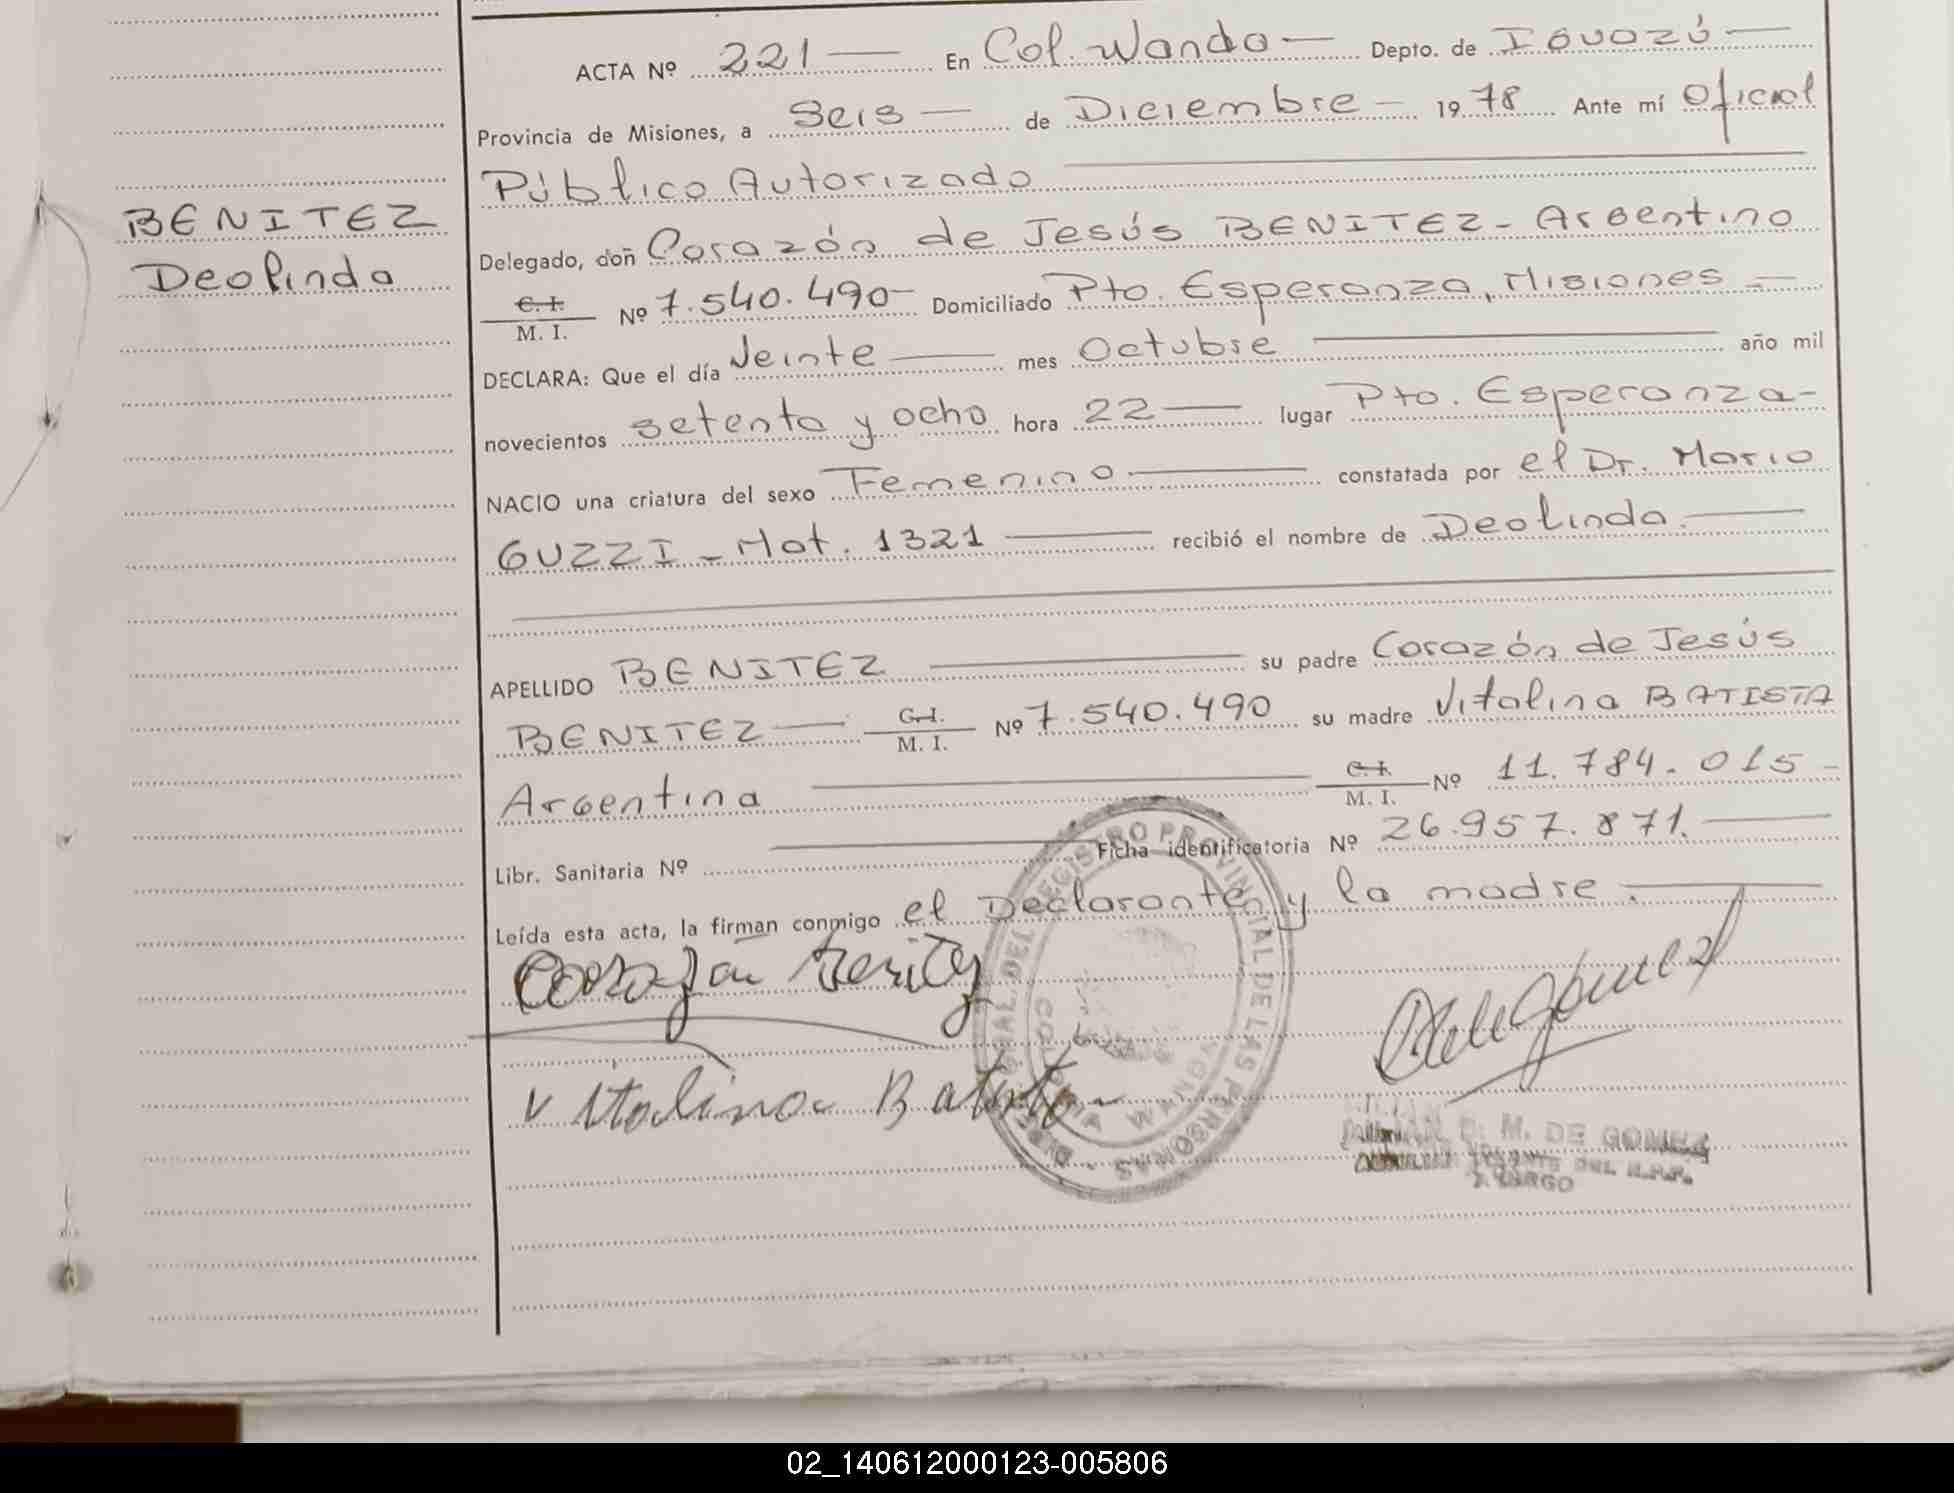 ACTA Nº 221 — En Col. Wanda — Depto. de IGUAZÚ —
Provincia de Misiones, a Seis — de Diciembre — 1978 Ante mí Oficial
Público Autorizado
BENITEZ
Deolinda
Delegado, don Corazón de Jesús BENITEZ - Argentino
C. I.
M. I. Nº 7.540.490 - Domiciliado Pto. Esperanza, Misiones —
DECLARA: Que el día Veinte — mes Octubre — año mil
novecientos setenta y ocho hora 22 — lugar Pto. Esperanza -
NACIO una criatura del sexo Femenino — constatada por el Dr. Mario
GUZZI - Mat. 1321 — recibió el nombre de Deolinda. —
APELLIDO BENITEZ — su padre Corazón de Jesús
BENITEZ — C. I. M. I. Nº 7.540.490 su madre Vitalina BATISTA
Argentina — C. I. M. I. Nº 11.784.015 -
Libr. Sanitaria Nº — Ficha identificatoria Nº 26.957.871. —
Leída esta acta, la firman conmigo el Declarante y la madre. —
Corazon Benitez
Vitalina Batista
DE GOMEZ
A CARGO
REGISTRO PROVINCIAL DE LAS PERSONAS
COLONIA WANDA
02_140612000123-005806